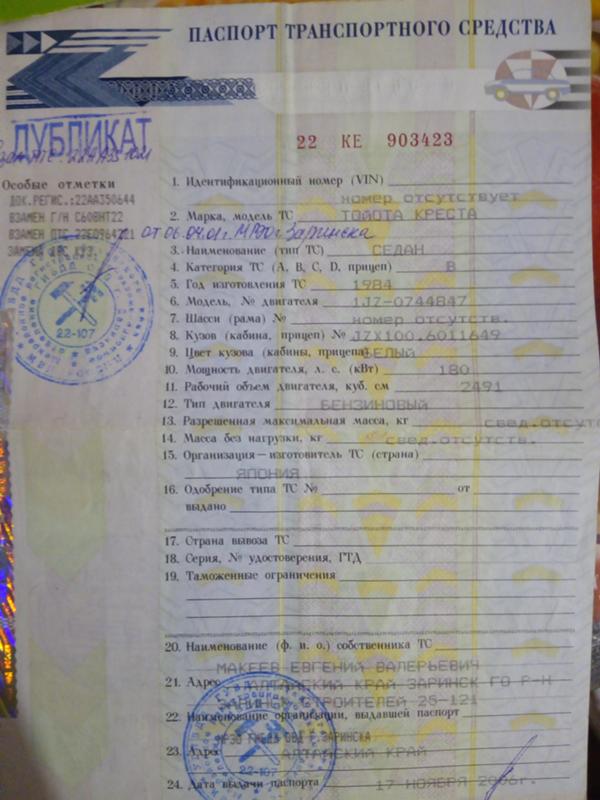 ПАСПОРТ ТРАНСПОРТНОГО СРЕДСТВА
22 КЕ 903423
ДУБЛИКАТ
Особые отметки
ДОК.РЕГИС.:22АА350644
ВЗАМЕН Г/Н С608НТ22
ВЗАМЕН ПТС 22Е0964221
от 06.04.01г. МРЭО г. Заринска
1. Идентификационный номер (VIN) номер отсутствует
2. Марка, модель ТС ТОЙОТА КРЕСТА
3. Наименование (тип ТС) СЕДАН
4. Категория ТС (A, B, C, D, прицеп) В
5. Год изготовления ТС 1984
6. Модель, № двигателя 1JZ-0744847
7. Шасси (рама) № номер отсутств.
8. Кузов (кабина, прицеп) № JZX100.6011649
9. Цвет кузова (кабины, прицепа) БЕЛЫЙ
10. Мощность двигателя, л. с. (кВт) 180
11. Рабочий объем двигателя, куб. см 2491
12. Тип двигателя БЕНЗИНОВЫЙ
13. Разрешенная максимальная масса, кг свед.отсутств
14. Масса без нагрузки, кг свед.отсутств.
15. Организация—изготовитель ТС (страна)
ЯПОНИЯ
16. Одобрение типа ТС № от
выдано
17. Страна вывоза ТС
18. Серия, № удостоверения, ГТД
19. Таможенные ограничения
20. Наименование (ф. и. о.) собственника ТС
МАКЕЕВ ЕВГЕНИЙ ВАЛЕРЬЕВИЧ
21. Адрес АЛТАЙСКИЙ КРАЙ ЗАРИНСК ГО Р-Н
СТРОИТЕЛЕЙ 25-121
22. Наименование организации, выдавшей паспорт
МРЭО ГИБДД ОВД Г.ЗАРИНСКА
23. Адрес АЛТАЙСКИЙ КРАЙ
24. Дата выдачи паспорта 17 НОЯБРЯ 2006г.
22-107
22-107